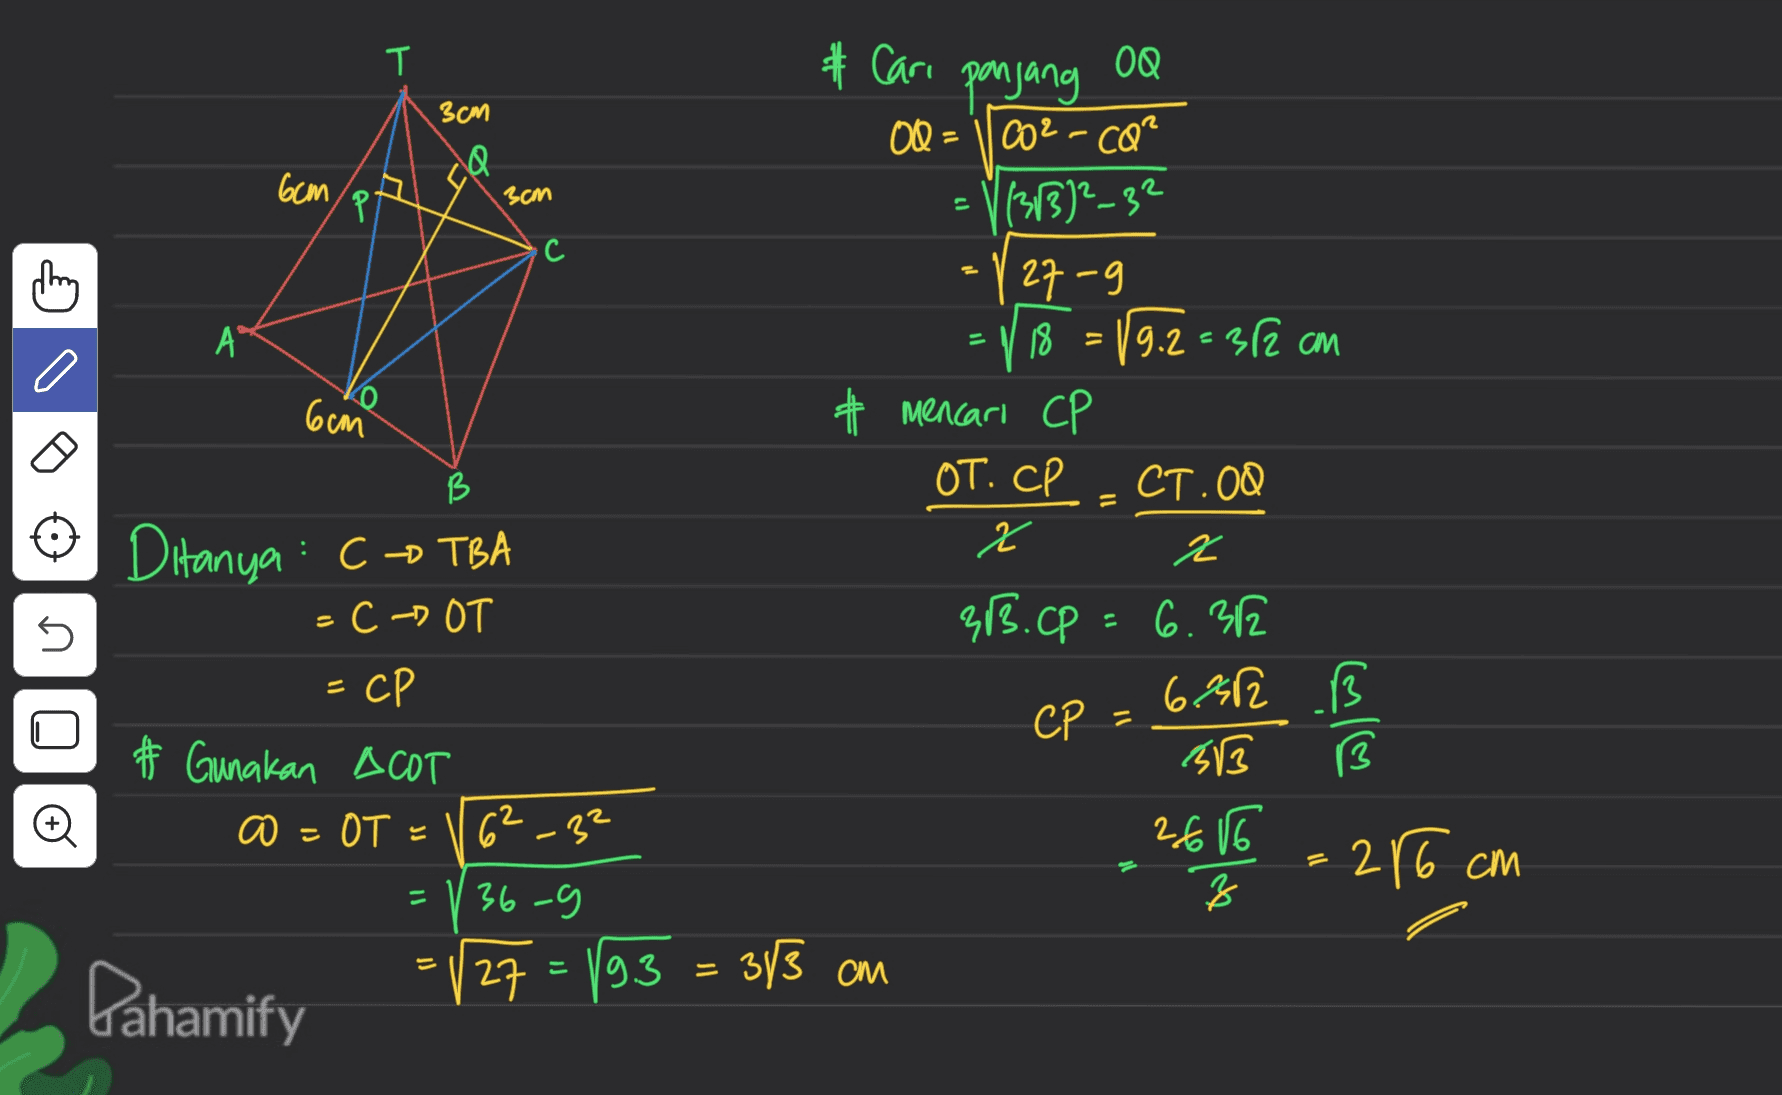 T
3cm
Q
6cm
P
3cm
C
A
O
6cm
B
Ditanya : C → TBA
= C → OT
= CP
# Gunakan ΔCOT
CO = OT = √6² - 3²
= √36 - 9
= √27 = √9.3 = 3√3 cm
# Cari panjang OQ
OQ = √CO² - CQ²
= √(3√3)² - 3²
= √27 - 9
= √18 = √9.2 = 3√2 cm
# mencari CP
OT. CP / 2 = CT. OQ / 2
3√3. CP = 6. 3√2
CP = 6.3√2 / 3√3 . √3 / √3
= 2 6√6 / 3 = 2√6 cm
Pahamify